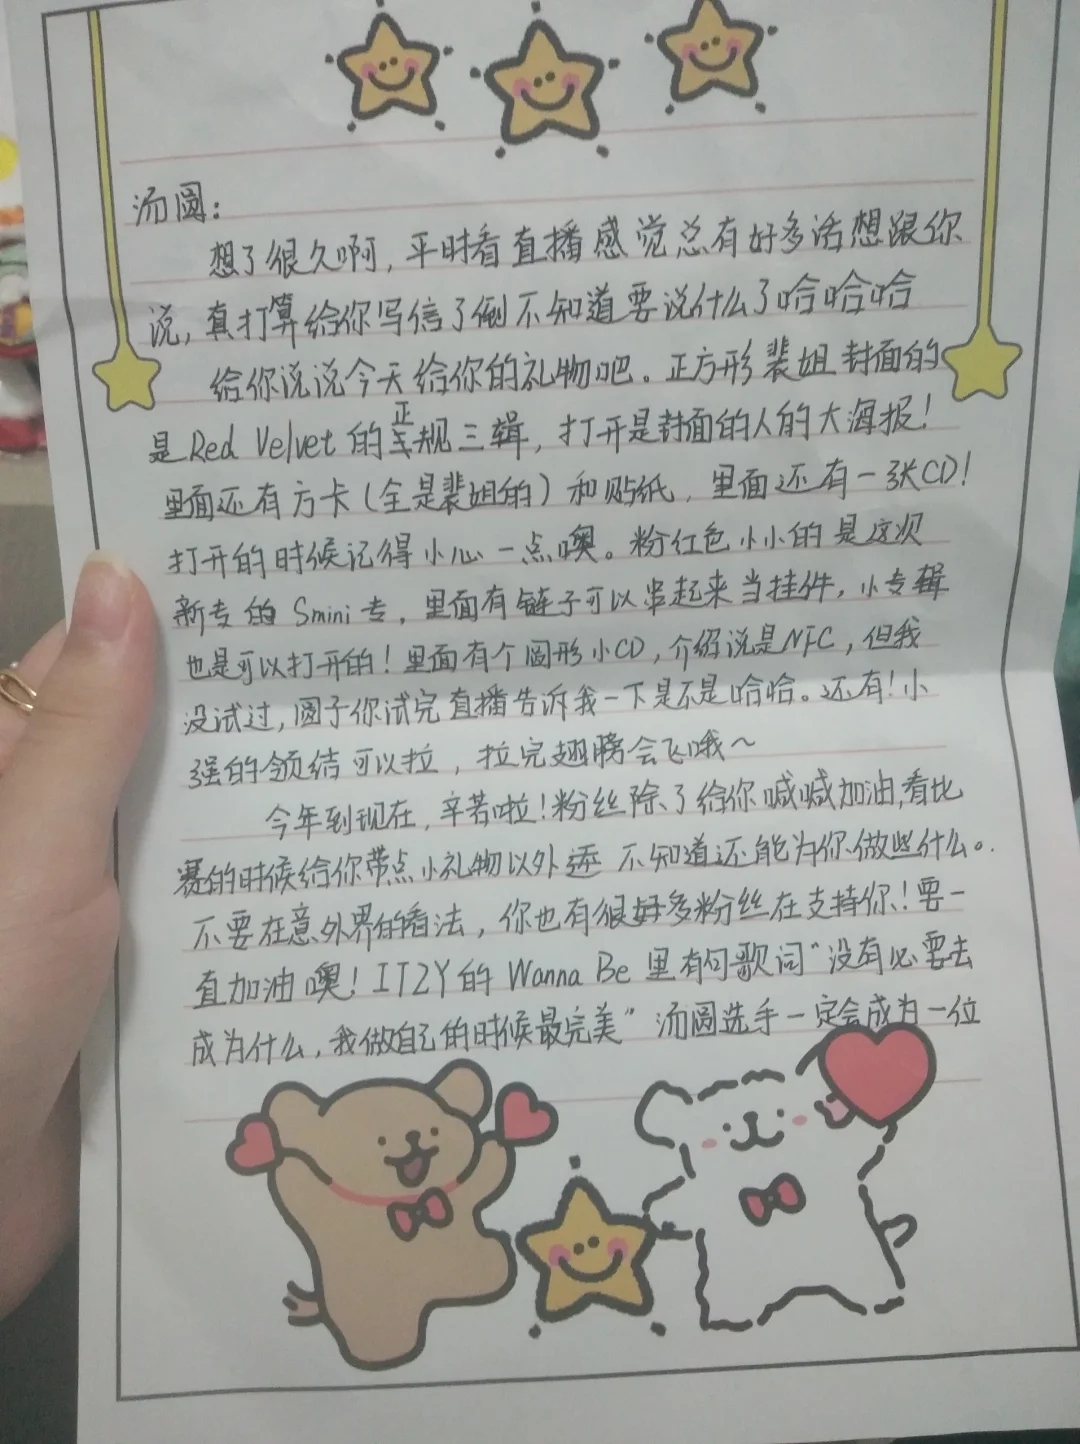 汤圆：
想了很久啊，平时看直播感觉总有好多话想跟你
说，真打算给你写信了倒不知道要说什么了哈哈哈
给你说说今天给你的礼物吧。正方形裴姐封面的
是Red Velvet的正规三辑，打开是封面的人的大海报！
里面还有方卡（全是裴姐的）和贴纸，里面还有一张CD！
打开的时候记得小心一点噢。粉红色小小的是这次
新专的Smini专，里面有链子可以串起来当挂件，小专辑
也是可以打开的！里面有个圆形小CD，介绍说是NFC，但我
没试过，圆子你试完直播告诉我一下是不是哈哈。还有！小
强的领结可以拉，拉完翅膀会飞哦～
今年到现在，辛苦啦！粉丝除了给你喊喊加油，看比
赛的时候给你带点小礼物以外还不知道还能为你做些什么。
不要在意外界的看法，你也有很好多粉丝在支持你！要一
直加油噢！ITZY的Wanna Be里有句歌词“没有必要去
成为什么，我做自己的时候最完美”汤圆选手一定会成为一位